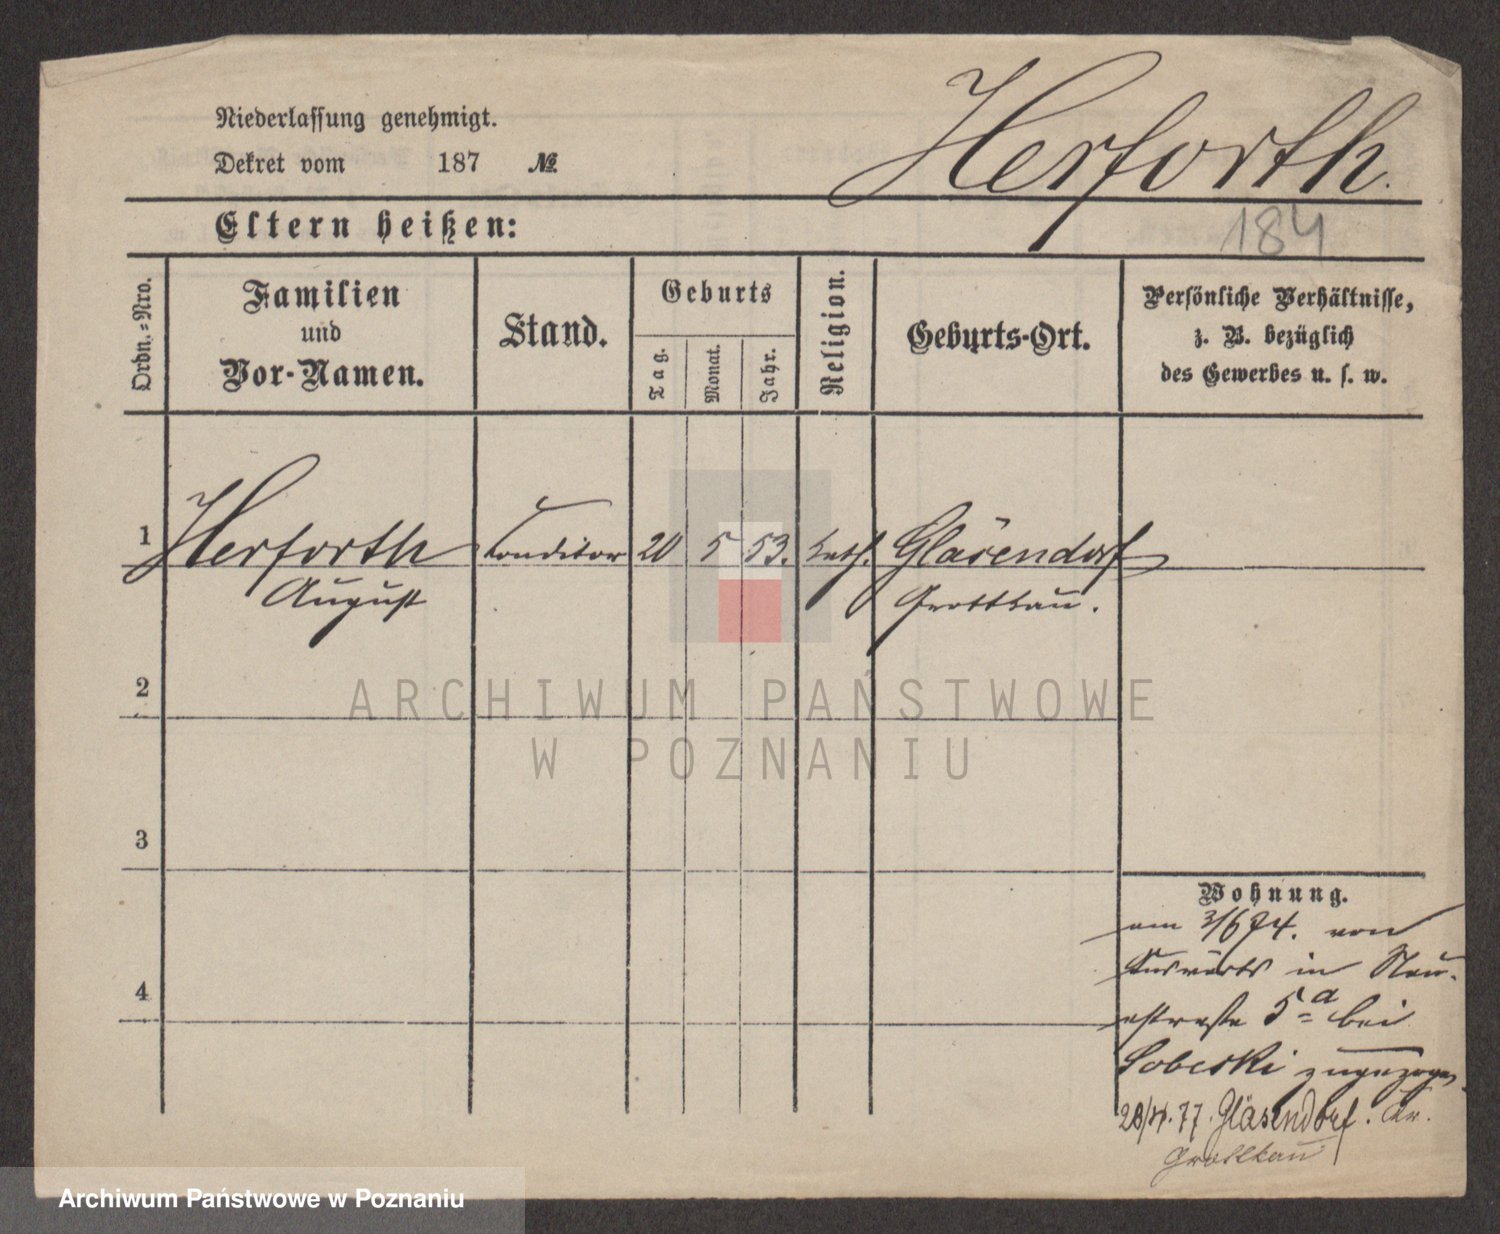 Herforth.
184
Niederlassung genehmigt.
Dekret vom 187 №
Eltern heißen:
Ordn.-Nro.
Familien
und
Vor-Namen.
Stand.
Geburts
Tag.
Monat.
Jahr.
Religion.
Geburts-Ort.
Persönliche Verhältnisse,
z. B. bezüglich
des Gewerbes u. s. w.
1 Herforth Conditor 20 5 53. kath. Gläsendorf
August Grottkau.
2
3
4
Wohnung.
am 3/6 74. von
Auswärts in Neu-
estraße 5a bei
Sobeski zugezogen
28/4.77. Gläsendorf. Kr.
Grottkau
ARCHIWUM PAŃSTWOWE
W POZNANIU
Archiwum Państwowe w Poznaniu